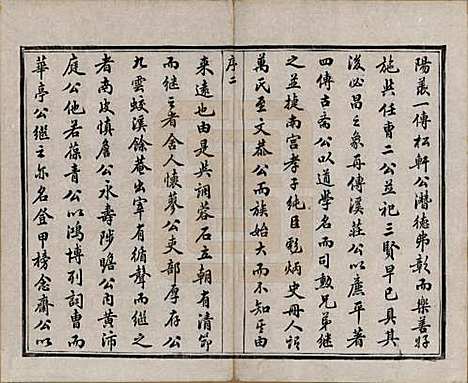 陽羨一傳松軒公潛德弗彰而樂善好
施與任曹二公並祀三賢早已具其
後必昌之象再傳溪莊公以廉平著
四傳古齋公以道學名而司勳兄弟繼
之並捷南宮孝子純臣彪炳史冊人謂
萬氏至文恭公而族始大而不知其由
序二
來遠也由是共調蓉石立朝有清節
而繼之者舍人懷蓼公吏部厚存公
九雲蛟溪餘菴出宰有循聲而繼之
者南坡慎詹公永壽陟瞻公內黃沛
庭公他若葆青公以鴻博列詞曹而
華亭公繼之亦名登甲榜念齋公以